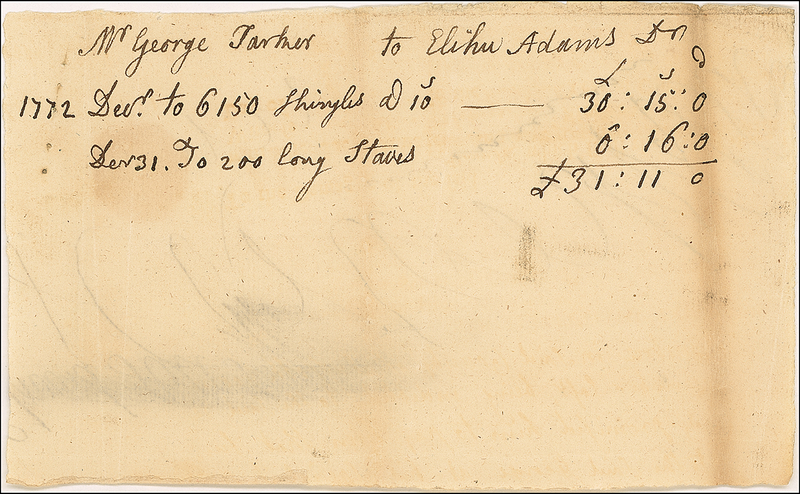 Mr George Tarker to Elihu Adams Dr
£ s d
1772 Decr to 6150 Shingles @ 10s — 30: 15: 0
Decr 31. To 200 long Staves 0: 16: 0
£31: 11 0